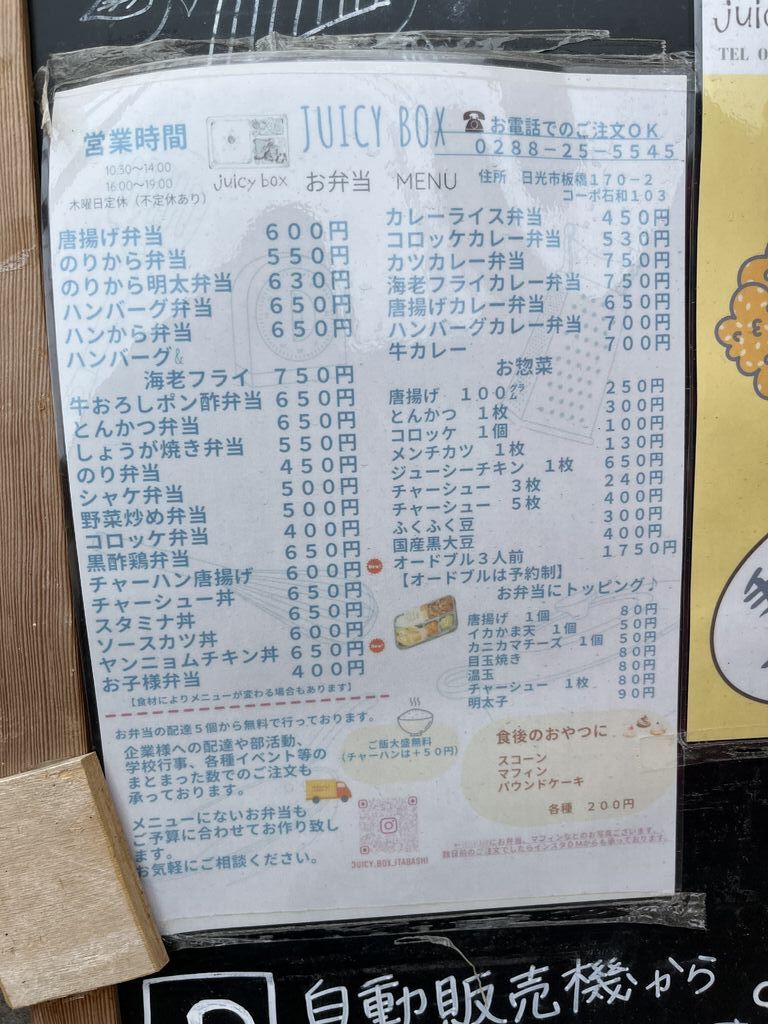 営業時間
10:30〜14:00
16:00〜19:00
木曜日定休（不定休あり）
juicy box
JUICY BOX
お弁当 MENU
お電話でのご注文ＯＫ
０２８８－２５－５５４５
住所 日光市板橋１７０－２
コーポ石和１０３
唐揚げ弁当 ６００円
のりから弁当 ５５０円
のりから明太弁当 ６３０円
ハンバーグ弁当 ６５０円
ハンから弁当 ６５０円
ハンバーグ&
海老フライ ７５０円
牛おろしポン酢弁当 ６５０円
とんかつ弁当 ６５０円
しょうが焼き弁当 ５５０円
のり弁当 ４５０円
シャケ弁当 ５００円
野菜炒め弁当 ５００円
コロッケ弁当 ４００円
黒酢鶏弁当 ６５０円
チャーハン唐揚げ ６００円
チャーシュー丼 ６５０円
スタミナ丼 ６５０円
ソースカツ丼 ６００円
ヤンニョムチキン丼 ６５０円
お子様弁当 ４００円
【食材によりメニューが変わる場合もあります】
カレーライス弁当 ４５０円
コロッケカレー弁当 ５３０円
カツカレー弁当 ７５０円
海老フライカレー弁当 ７５０円
唐揚げカレー弁当 ６５０円
ハンバーグカレー弁当 ７００円
牛カレー ７００円
お惣菜
唐揚げ １００㌘ ２５０円
とんかつ １枚 ３００円
コロッケ １個 １００円
メンチカツ １枚 １３０円
ジューシーチキン １枚 ６５０円
チャーシュー ３枚 ２４０円
チャーシュー ５枚 ４００円
ふくふく豆 ３００円
国産黒大豆 ４００円
オードブル３人前 １７５０円
【オードブルは予約制】
お弁当にトッピング♪
唐揚げ １個 ８０円
イカかま天 １個 ５０円
カニカマチーズ １個 ５０円
目玉焼き ８０円
温玉 ８０円
チャーシュー １枚 ８０円
明太子 ９０円
お弁当の配達５個から無料で行っております。
企業様への配達や部活動、
学校行事、各種イベント等の
まとまった数でのご注文も
承っております。
メニューにないお弁当も
ご予算に合わせてお作り致し
ます。
お気軽にご相談ください。
ご飯大盛無料
（チャーハンは＋５０円）
JUICY.BOX_ITABASHI
食後のおやつに
スコーン
マフィン
パウンドケーキ
各種 ２００円
にお弁当、マフィンなどのお写真ございます。
数日前のご注文でしたらインスタＤＭからも承っております。
TEL 0
自動販売機から